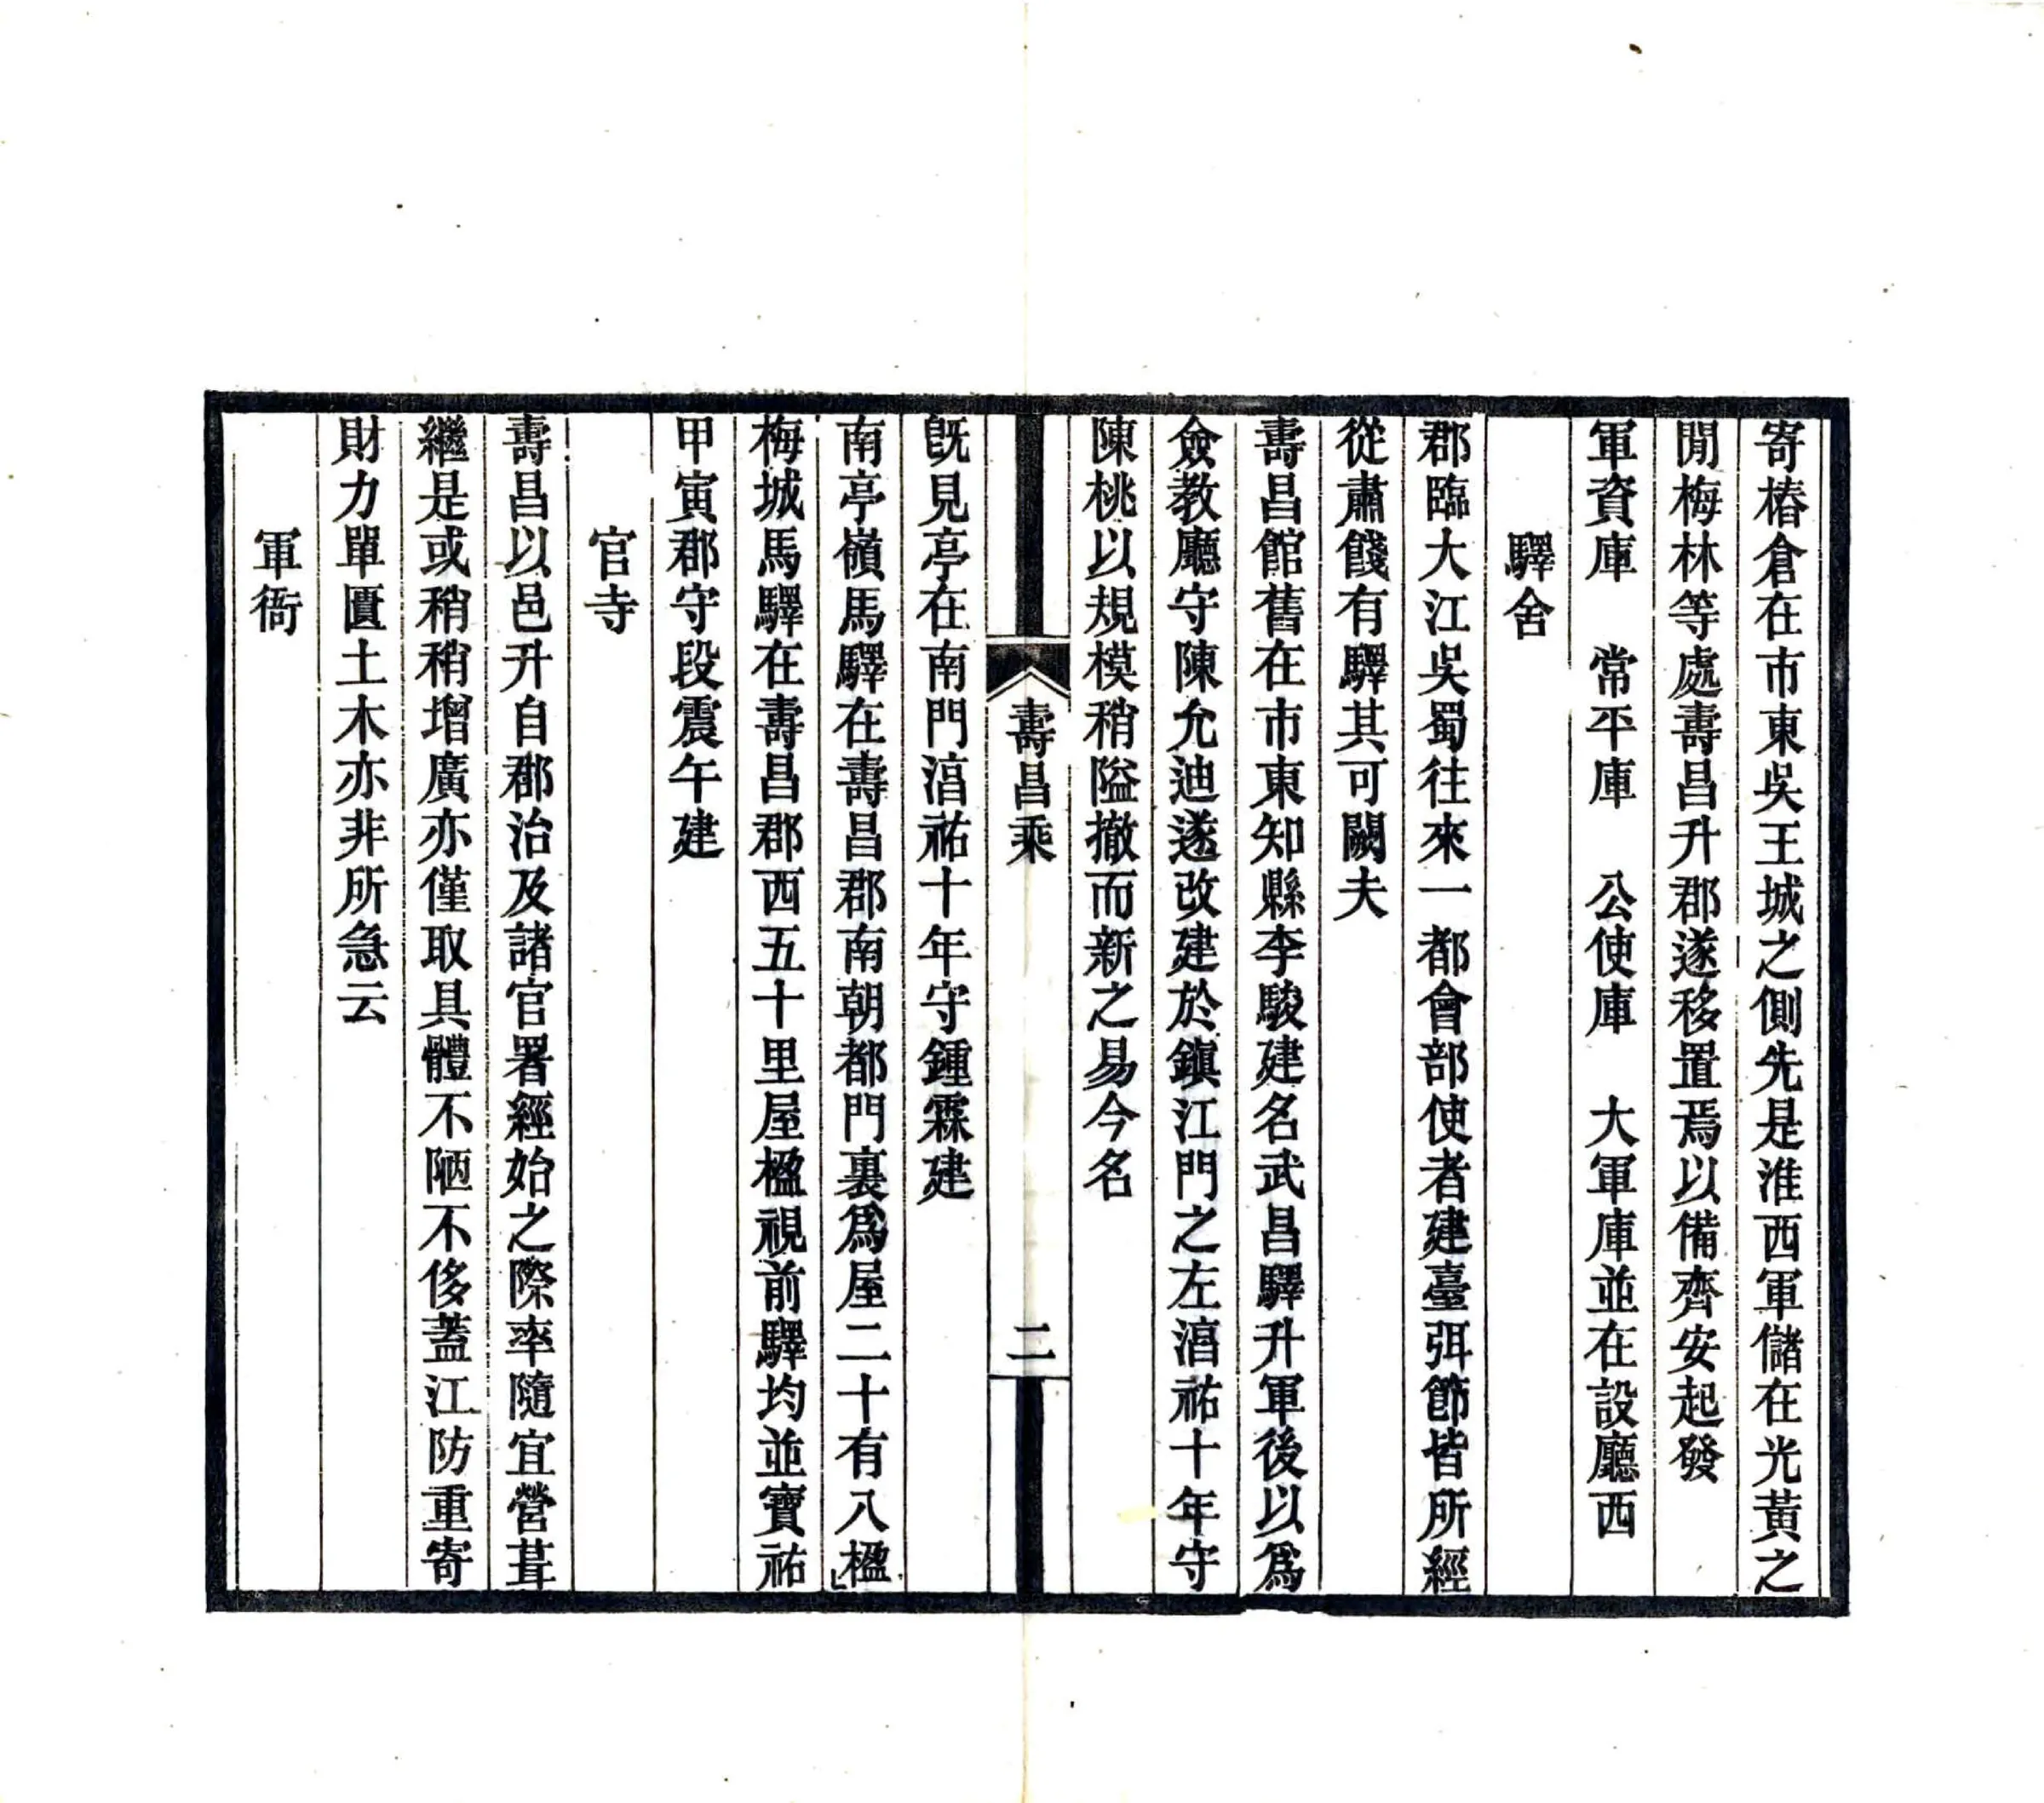 寄樁倉在市東吳王城之側先是淮西軍儲在光黃之
閒梅林等處壽昌升郡遂移置焉以備齊安起發
軍資庫　常平庫　公使庫　大軍庫並在設廳西
驛舍
郡臨大江吳蜀往來一都會部使者建臺弭節皆所經
從肅餞有驛其可闕夫
壽昌館舊在市東知縣李駿建名武昌驛升軍後以爲
僉教廳守陳允迪遂改建於鎭江門之左湻祐十年守
陳桃以規模稍隘撤而新之易今名
壽昌乘
二
旣見亭在南門湻祐十年守鍾霖建
南亭嶺馬驛在壽昌郡南朝都門裏爲屋二十有八楹
梅城馬驛在壽昌郡西五十里屋楹視前驛均並寶祐
甲寅郡守段震午建
官寺
壽昌以邑升自郡治及諸官署經始之際率隨宜營葺
繼是或稍稍增廣亦僅取具體不陋不侈蓋江防重寄
財力單匱土木亦非所急云
軍衙